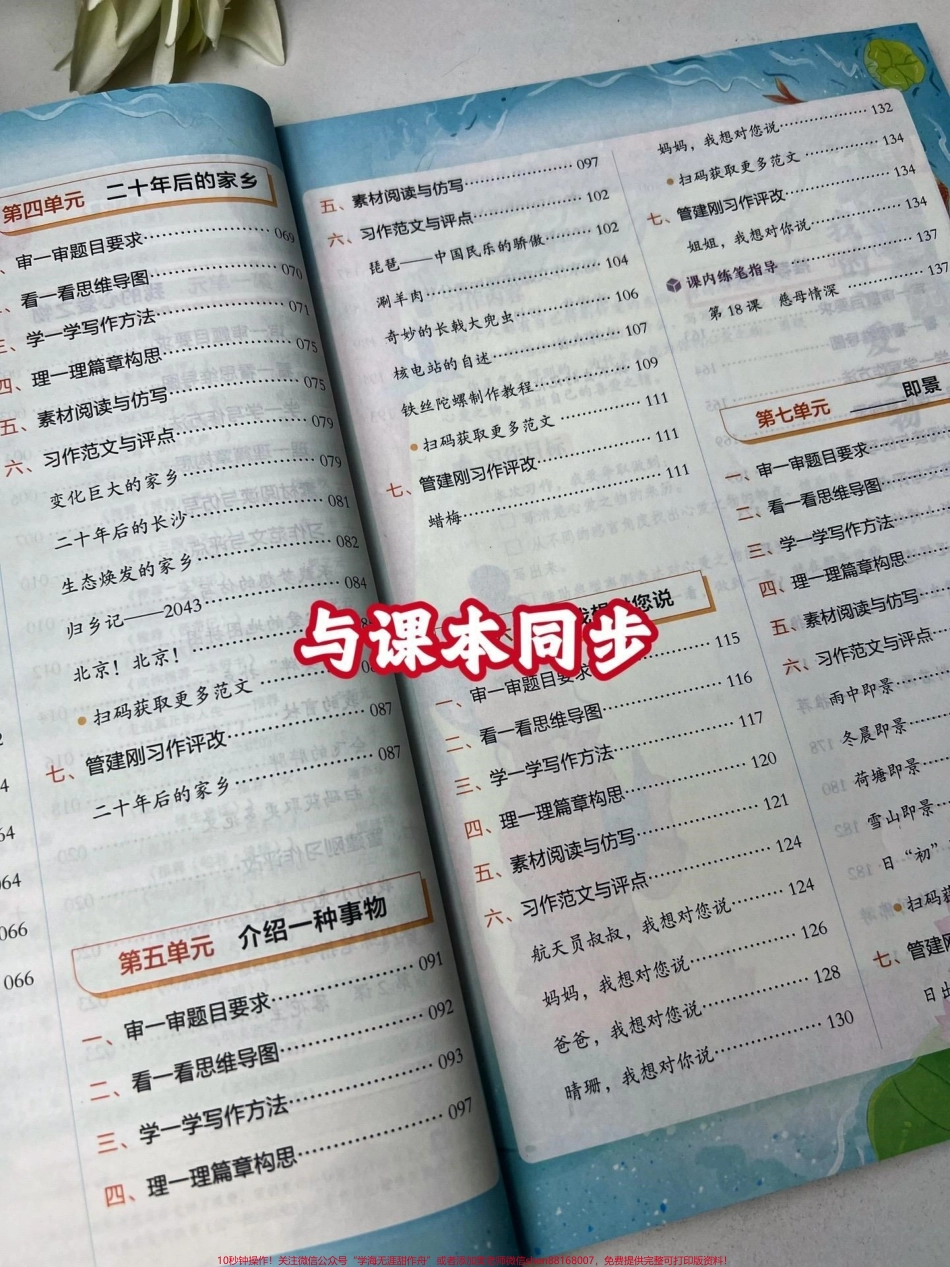 2
4
64
064
066
066
第四单元 二十年后的家乡
审一审题目要求 069
看一看思维导图 070
三、学一学写作方法 071
四、理一理篇章构思 075
五、素材阅读与仿写 075
六、习作范文与评点 079
变化巨大的家乡 079
二十年后的长沙 081
生态焕发的家乡 082
归乡记——2043 084
北京！北京！
扫码获取更多范文
七、管建刚习作评改 087
二十年后的家乡 087
第五单元 介绍一种事物
一、审一审题目要求 091
二、看一看思维导图 092
三、学一学写作方法 093
四、理一理篇章构思 097
五、素材阅读与仿写 097
六、习作范文与评点 102
琵琶——中国民乐的骄傲 102
涮羊肉 104
奇妙的长戟大兜虫 106
核电站的自述 107
铁丝陀螺制作教程 109
扫码获取更多范文 111
七、管建刚习作评改 111
蜡梅 111
我想对您说
一、审一审题目要求 115
二、看一看思维导图 116
三、学一学写作方法 117
四、理一理篇章构思 120
五、素材阅读与仿写 121
六、习作范文与评点 124
航天员叔叔，我想对您说 124
妈妈，我想对您说 126
爸爸，我想对您说 128
晴珊，我想对你说 130
妈妈，我想对您说 132
扫码获取更多范文 134
七、管建刚习作评改 134
姐姐，我想对你说 134
课内练笔指导 137
第18课 慈母情深 137
第七单元 ____即景
一、审一审题目要求
二、看一看思维导图
三、学一学写作方法
四、理一理篇章构思
五、素材阅读与仿写
六、习作范文与评点
雨中即景
冬晨即景
荷塘即景
雪山即景
日“初”
扫码获
七、管建
日出
与课本同步
10秒钟操作！关注微信公众号“学海无涯甜作舟”或者添加
88168007，免费提供完整可打印版资料！